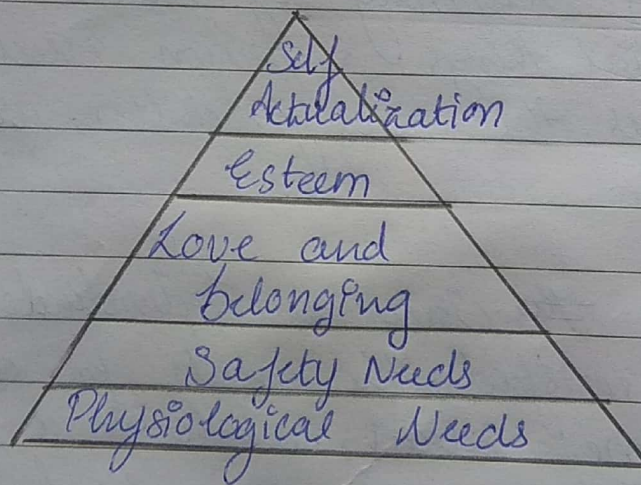 Self
Actualization
Esteem
Love and
belonging
Safety Needs
Physiological Needs